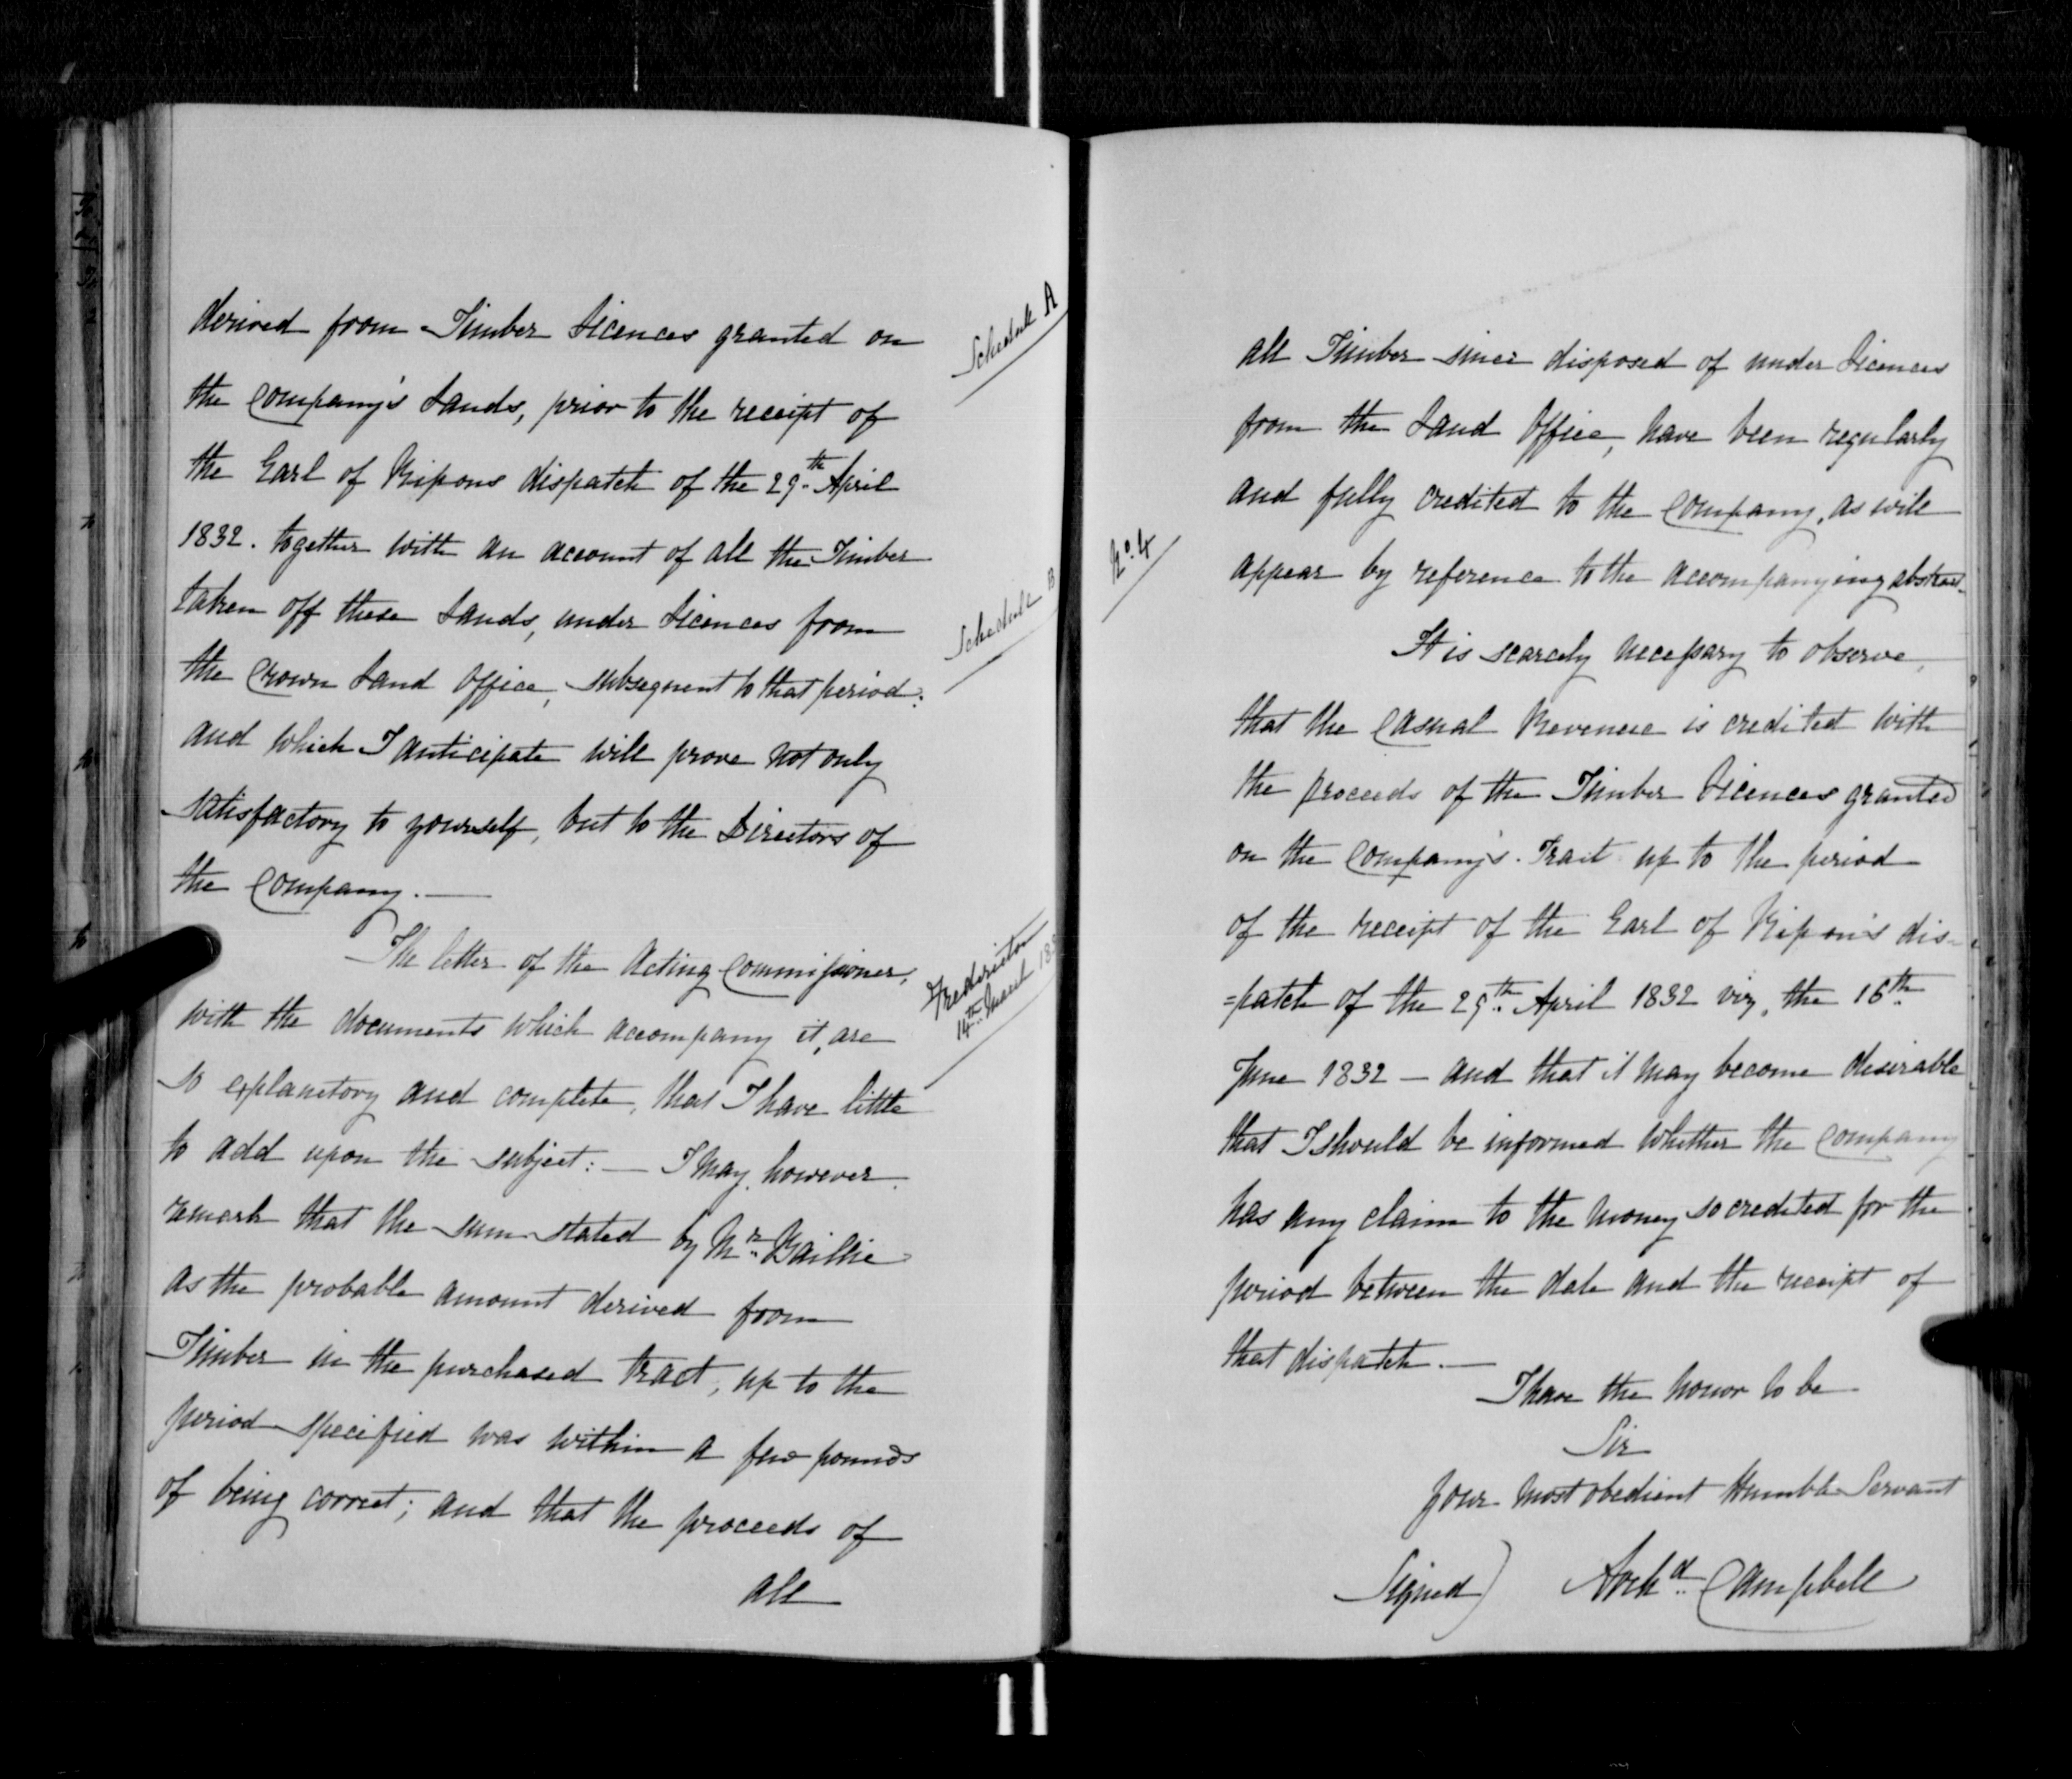 derived from Timber Licences granted on
Schedule A
the Company's Lands, prior to the receipt of
the Earl of Ripons dispatch of the 29th April
1832. together with an account of all the Timber
taken off these Lands, under Licences from
Schedule B
the Crown Land Office, subsequent to that period:
and which I anticipate will prove not only
satisfactory to yourself, but to the Directors of
the Company. —
The letter of the Acting Commissioner,
Fredericton
14th March 183
with the documents which accompany it, are
so explanatory and complete, that I have little
to add upon the subject: — I may, however,
remark that the sum stated by Mr. Baillie
as the probable amount derived from
Timber in the purchased tract, up to the
period specified was within a few pounds
of being correct; and that the proceeds of
all
all Timber since disposed of under Licences
from the Land Office, have been regularly
and fully credited to the Company, as will
No. 4
appear by reference to the accompanying abstract.
It is scarcely necessary to observe,
that the Casual Revenue is credited with
the proceeds of the Timber Licences granted
on the Company's Tract up to the period
of the receipt of the Earl of Ripon's dis-
=patch of the 29th April 1832 viz, the 16th
June 1832 — and that it may become desirable
that I should be informed whether the Company
has any claim to the money so credited for the
period between the date and the receipt of
that dispatch. —
I have the honor to be
Sir
Your most obedient Humble Servant
Signed) Archd. Campbell